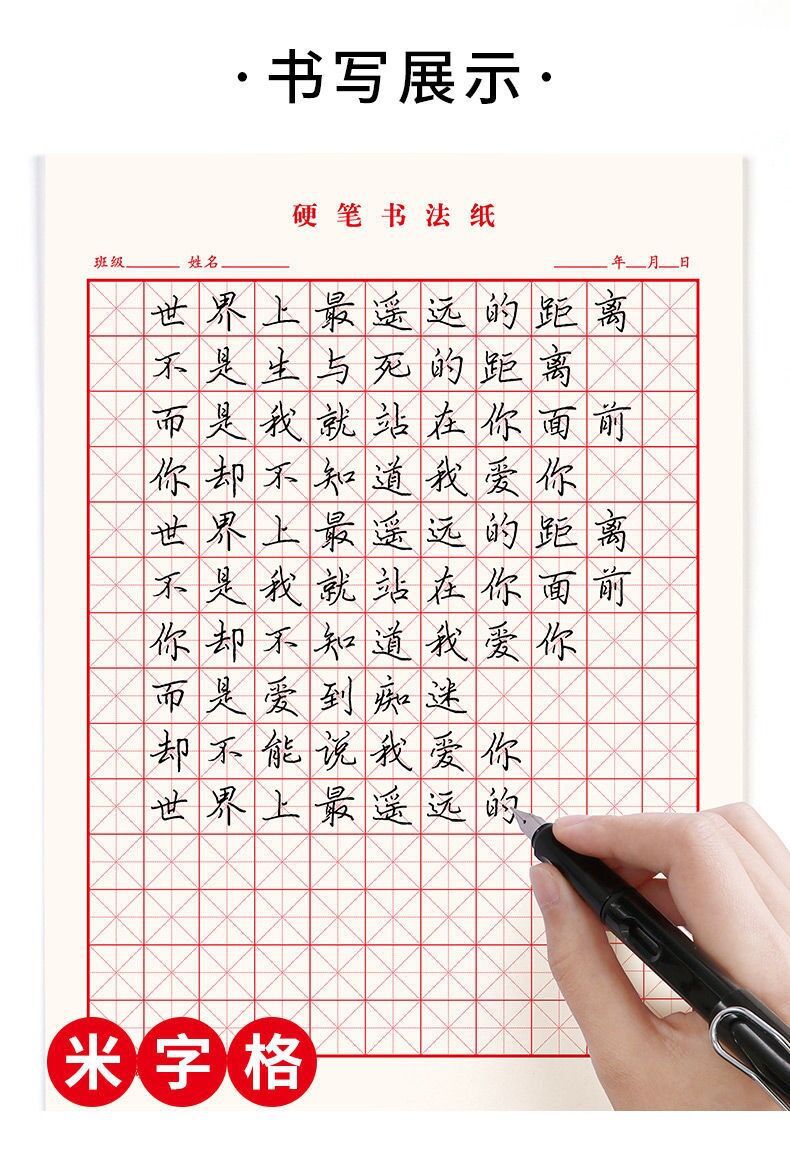 ·书写展示·
硬笔书法纸
班级______ 姓名________ ______年__月__日
世界上最遥远的距离
不是生与死的距离
而是我就站在你面前
你却不知道我爱你
世界上最遥远的距离
不是我就站在你面前
你却不知道我爱你
而是爱到痴迷
却不能说我爱你
世界上最遥远的
米字格